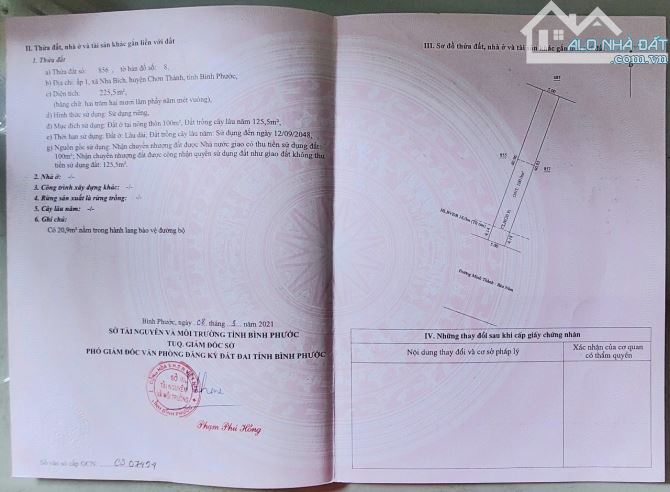 II. Thửa đất, nhà ở và tài sản khác gắn liền với đất
1. Thửa đất
a) Thửa đất số: 856, tờ bản đồ số: 8,
b) Địa chỉ: ấp 1, xã Nha Bích, huyện Chơn Thành, tỉnh Bình Phước,
c) Diện tích: 225,5m²,
(bằng chữ: hai trăm hai mươi lăm phẩy năm mét vuông),
d) Hình thức sử dụng: Sử dụng riêng,
đ) Mục đích sử dụng: Đất ở tại nông thôn 100m², Đất trồng cây lâu năm 125,5m²,
e) Thời hạn sử dụng: Đất ở: Lâu dài; Đất trồng cây lâu năm: Sử dụng đến ngày 12/09/2048,
g) Nguồn gốc sử dụng: Nhận chuyển nhượng đất được Nhà nước giao có thu tiền sử dụng đất:
100m²; Nhận chuyển nhượng đất được công nhận quyền sử dụng đất như giao đất không thu
tiền sử dụng đất: 125,5m².
2. Nhà ở: -/-
3. Công trình xây dựng khác: -/-
4. Rừng sản xuất là rừng trồng: -/-
5. Cây lâu năm: -/-
6. Ghi chú:
Có 20,9m² nằm trong hành lang bảo vệ đường bộ
Bình Phước, ngày 08 tháng 3 năm 2021
SỞ TÀI NGUYÊN VÀ MÔI TRƯỜNG TỈNH BÌNH PHƯỚC
TUQ. GIÁM ĐỐC SỞ
PHÓ GIÁM ĐỐC VĂN PHÒNG ĐĂNG KÝ ĐẤT ĐAI TỈNH BÌNH PHƯỚC
SỞ
TÀI NGUYÊN
VÀ MÔI TRƯỜNG
Phạm Phú Hồng
Số vào sổ cấp GCN: CS 07454
ALO NHÀ ĐẤT
.com.vn
III. Sơ đồ thửa đất, nhà ở và tài sản khác gắn
5.00
4.14
4.14
5.00
Đường Minh Thành - Bàu Nàm
IV. Những thay đổi sau khi cấp giấy chứng nhận
Nội dung thay đổi và cơ sở pháp lý
Xác nhận của cơ quan
có thẩm quyền